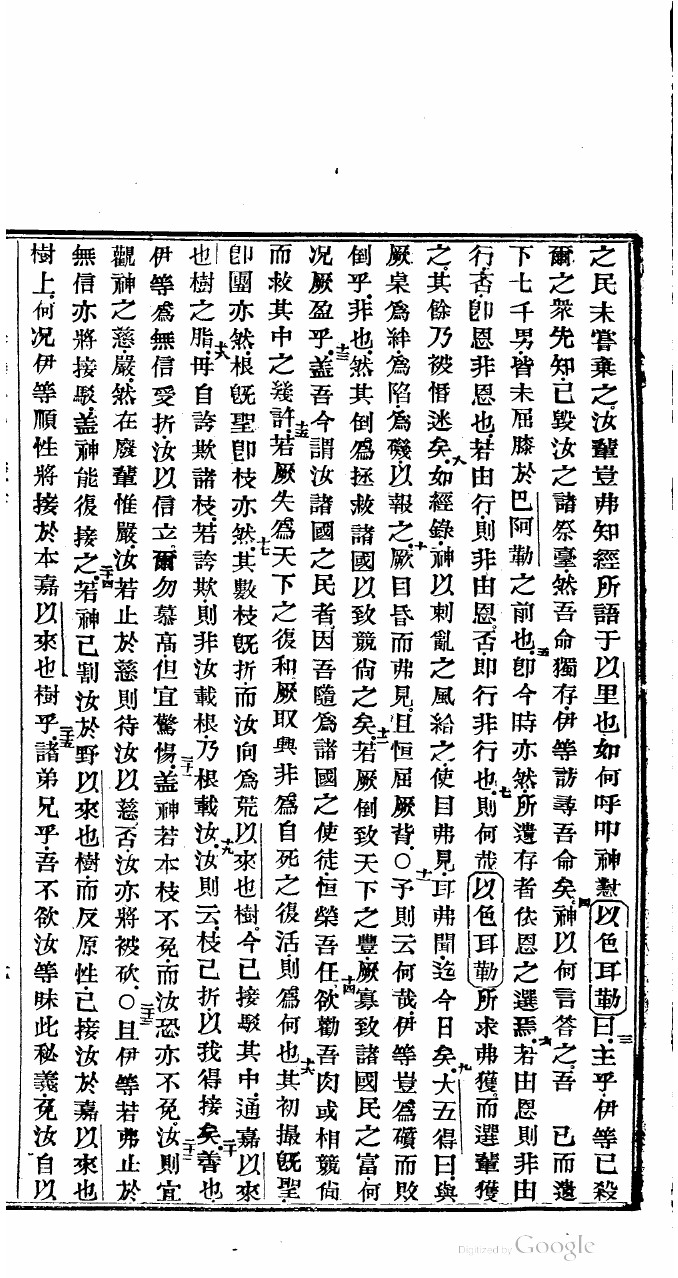 之民未嘗棄之汝輩豈弗知經所語于以里也如何呼叩神懟以色耳勒曰三主乎伊等已殺
爾之衆先知已毀汝之諸祭臺然吾命獨存伊等訪尋吾命矣四神以何言答之吾 已而遺
下七千男皆未屈膝於巴阿勒之前也五卽今時亦然所遺存者依恩之選焉六若由恩則非由
行否卽恩非恩也若由行則非由恩否卽行非行也七則何哉以色耳勒所求弗獲而選輩獲
之其餘乃被惛迷矣八如經錄神以刺亂之風給之使目弗見耳弗聞迄今日矣九大五得曰與
厥臬爲絆爲陷爲磯以報之十厥目昏而弗見且恒屈厥背〇十一予則云何哉伊等豈爲礩而敗
倒乎非也然其倒爲拯救諸國以致競尙之矣十二若厥倒致天下之豐厥寡致諸國民之富何
况厥盈乎十三盖吾今謂汝諸國之民者因吾隨爲諸國之使徒恒榮吾任十四欲勸吾肉或相競尙
而救其中之幾許十五若厥失爲天下之復和厥取興非爲自死之復活則爲何也十六其初撮旣聖
卽團亦然根旣聖卽枝亦然十七其數枝旣折而汝向爲荒以來也樹今已接駁其中通嘉以來
也樹之脂十八毋自誇欺諸枝若誇欺則非汝載根乃根載汝十九汝則云枝已折以我得接矣二十善也
伊等爲無信受折汝以信立爾勿慕高但宜驚惕二十一盖神若本枝不免而汝恐亦不免二十二汝則宜
觀神之慈嚴然在廢輩惟嚴汝若止於慈則待汝以慈否汝亦將被砍〇二十三且伊等若弗止於
無信亦將接駁盖神能復接之二十四若神已割汝於野以來也樹而反原性已接汝於嘉以來也
樹上何况伊等順性將接於本嘉以來也樹乎二十五諸弟兄乎吾不欲汝等昧此秘義免汝自以
Digitized by Google